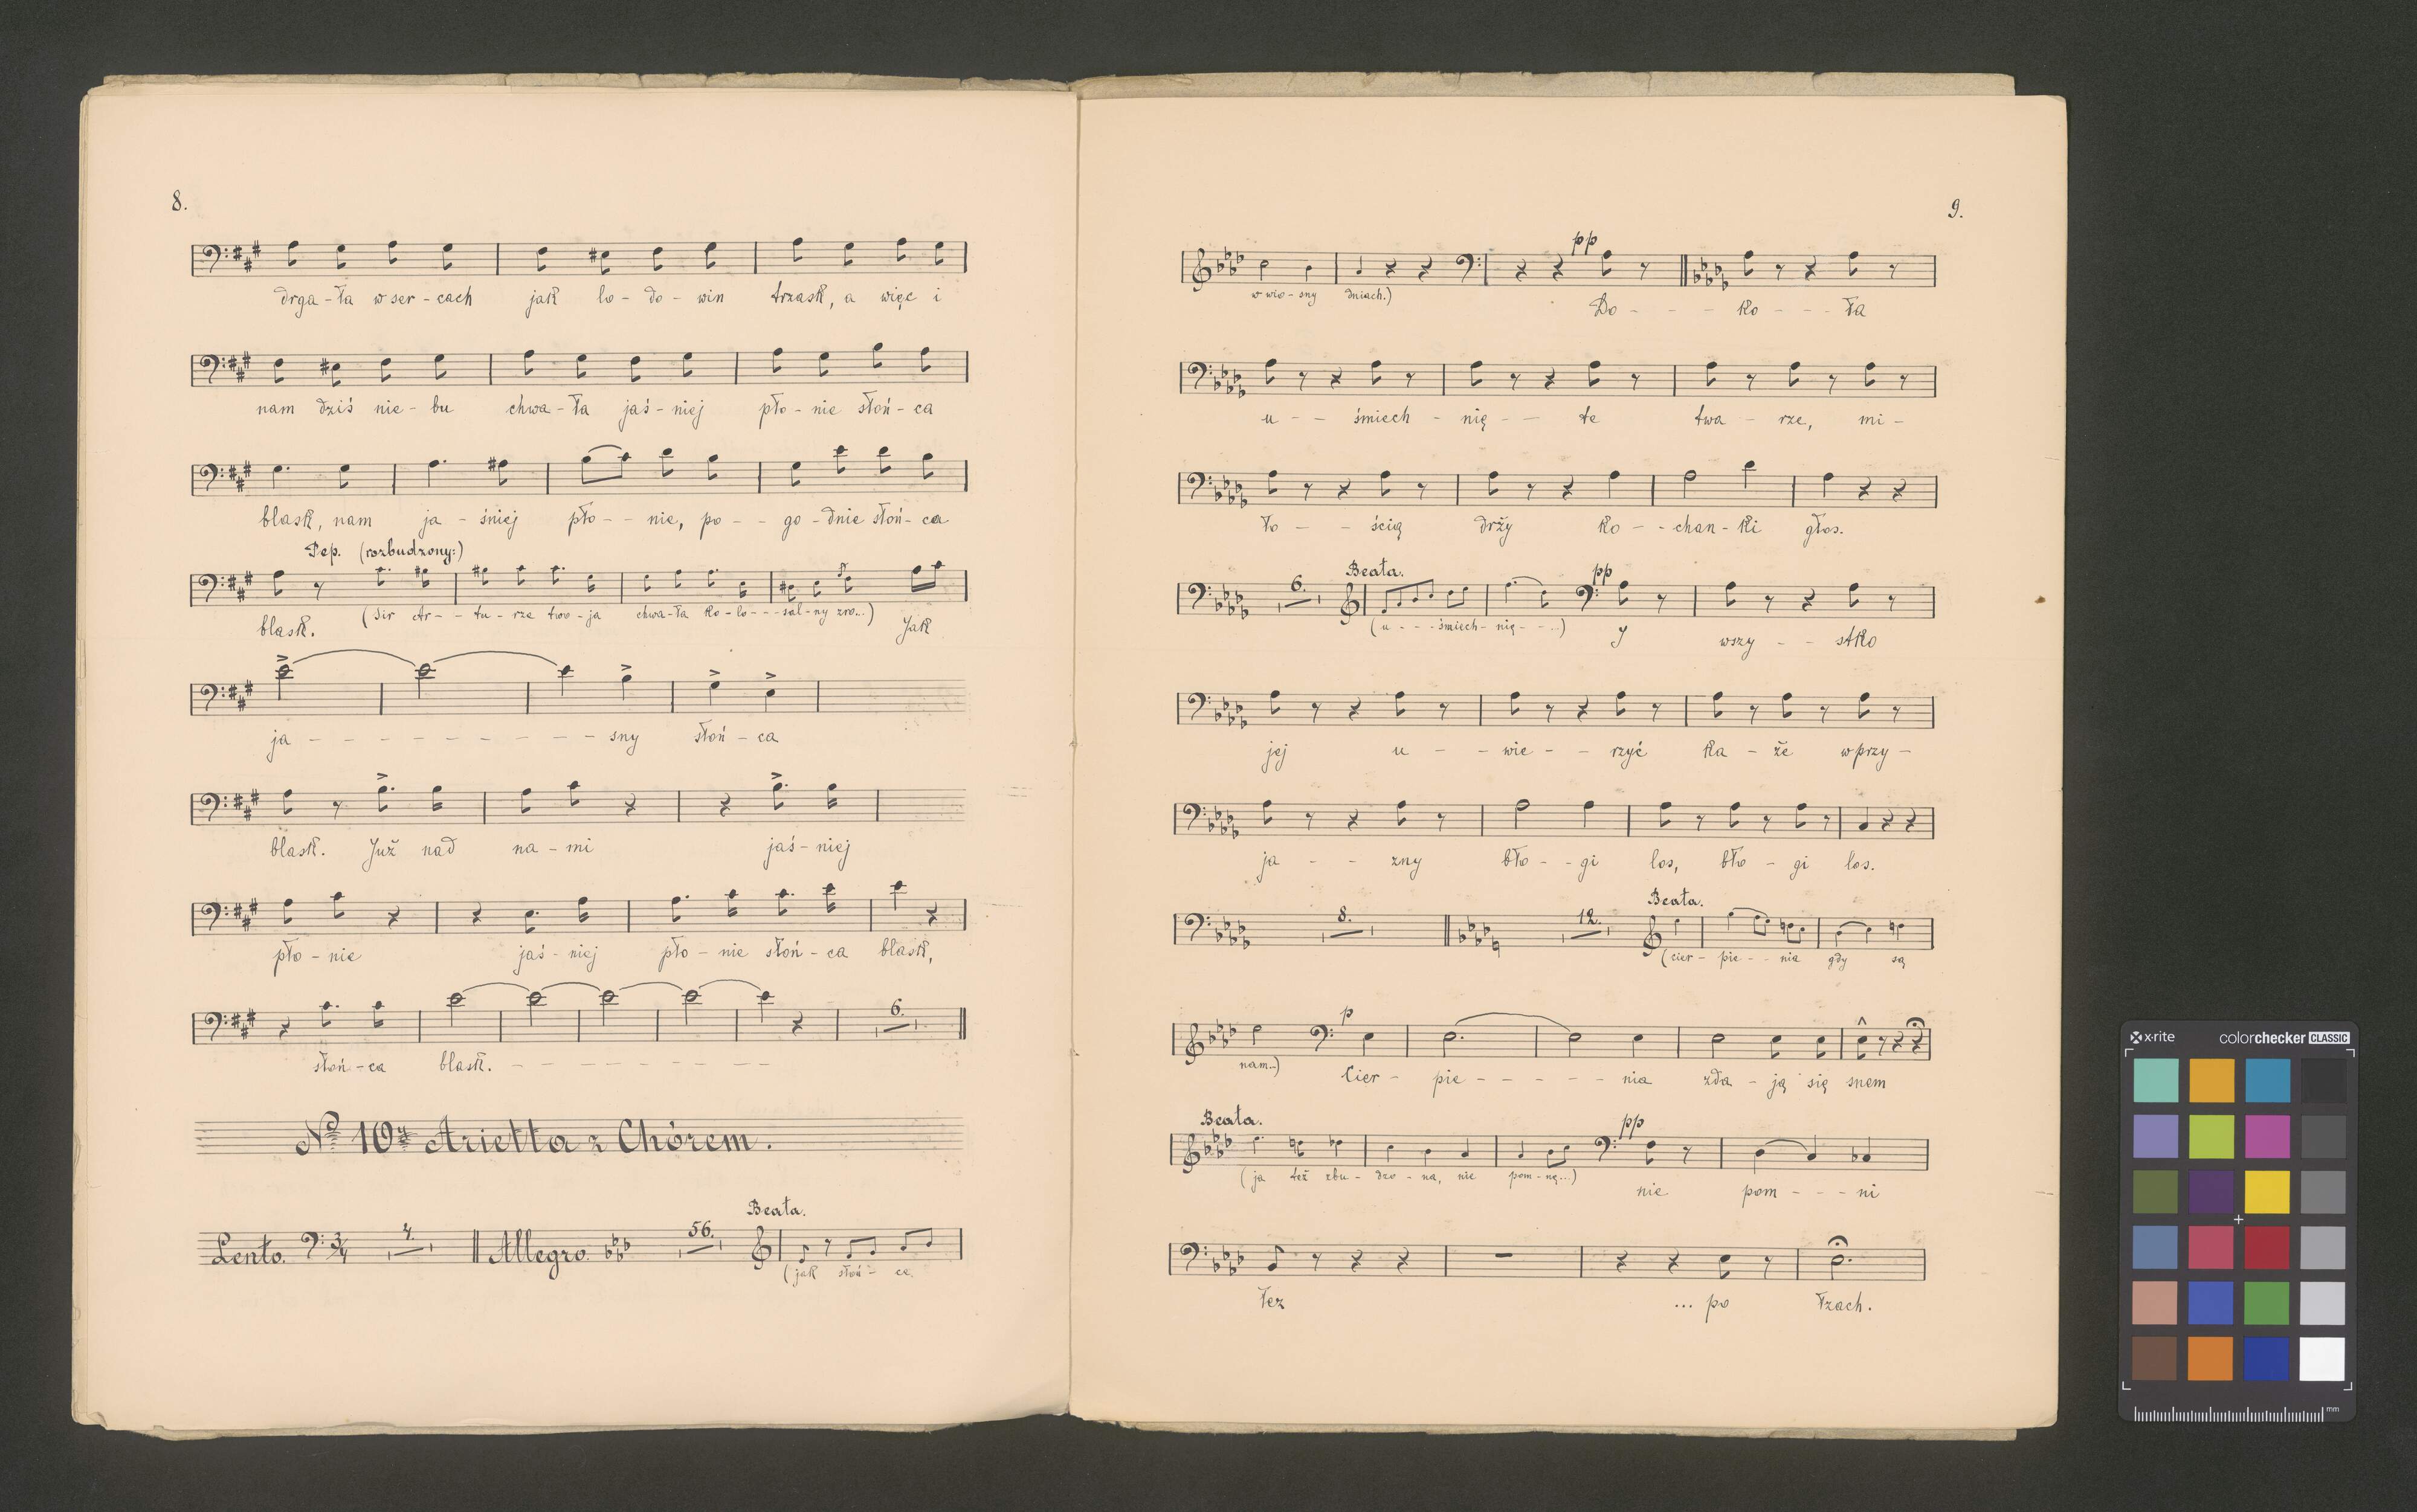 8.
drga - ła w ser - cach jak lo - do - win trzask, a więc i
nam dziś nie - bu chwa - ła jaś - niej pło - nie słoń - ca
blask, nam ja - śniej pło - - nie, po - - go - dnie słoń - ca
Pep. (rozbudzony:)
blask. (Sir Ar - - tu - rze two - ja chwa - ła ko - lo - - - sal - ny zro...) Jak
ja - - - - - - - - - sny słoń - ca
blask. Już nad na - mi jaś - niej
pło - nie jaś - niej pło - nie słoń - ca blask,
6.
słoń - ca blask. - - - - - - - -
No 10. Arietta z Chórem.
Beata.
Lento. 3/4 4. Allegro. 56.
(jak słoń - ce
9.
pp
w wio - sny dniach.) Do - - - ko - - - ła
u - - śmiech - nię - - te twa - rze, mi -
ło - - ścią drży ko - - chan - ki głos.
6. Beata. pp
(u - - - śmiech - nię - - ..) Y wszy - - stko
jej u - - wie - - rzyć ka - że w przy -
ja - - zny bło - - gi los, bło - gi los.
8. 12. Beata.
(cier - pie - - nia gdy są
p
nam..) Cier - pie - - - - - nia zda - ją się snem
Beata. pp
(ja też zbu - dzo - na, nie pom - nę...) nie pom - - - ni
łez ... po łzach.
x-rite colorchecker CLASSIC
mm